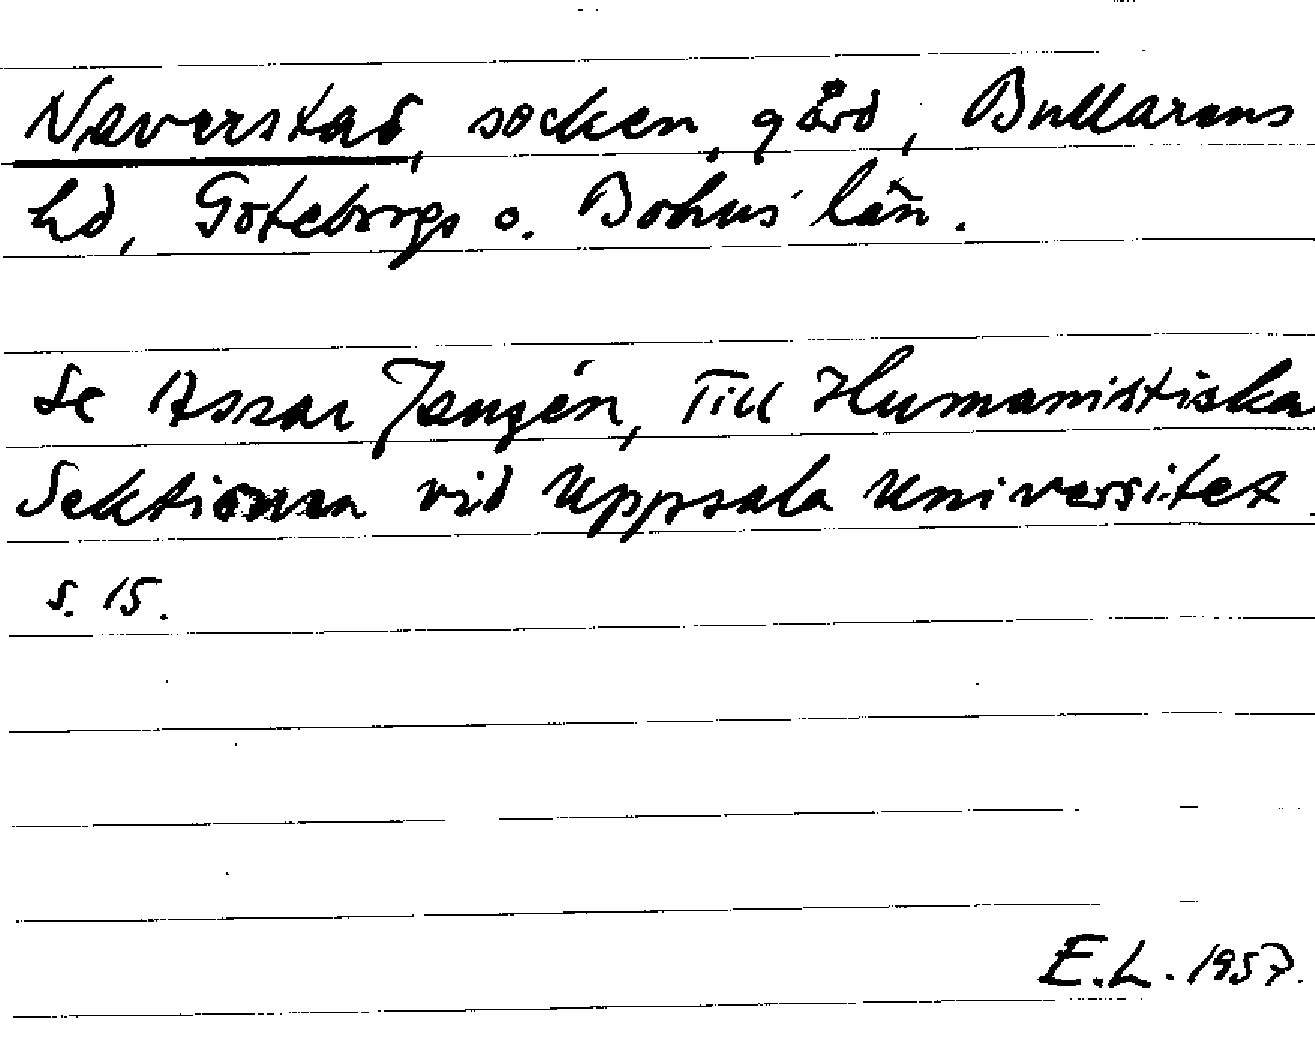 Naverstad, socken, gård, Bullarens
hd, Göteborgs o. Bohus län.
Se Assar Janzén, Till Humanistiska
Sektionen vid Uppsala Universitet
s. 15.
E.L. 1957.